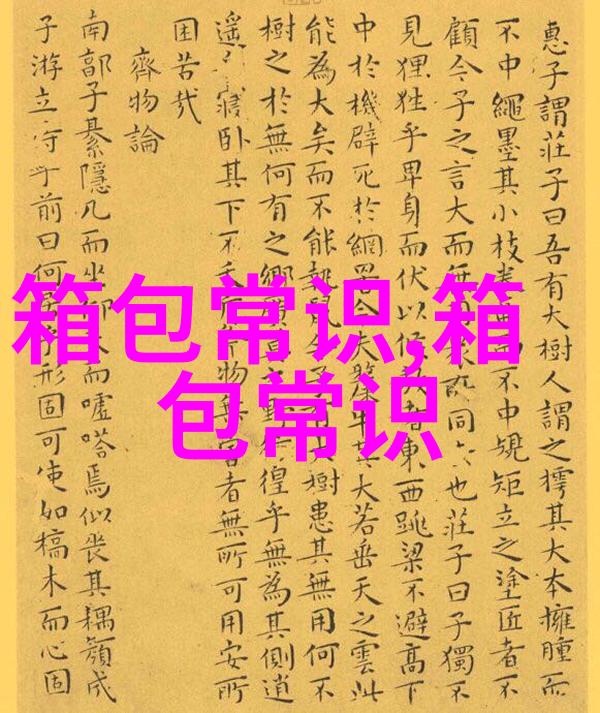 惠子謂莊子曰吾有大樹人謂之樗其大本擁腫而
不中繩墨其小枝而不中規矩立之塗匠者不
顧今子之言大而無同也莊子曰子獨不
見狸狌乎卑身而伏以東西跳梁不避高下
中於機辟死於網罟今夫其大若垂天之雲此
能為大矣而不能執鼠今子樹患其無用何不
樹之於無何有之鄉之野徨乎無為其側逍
遙寢臥其下不物無害者無所可用安所
困苦哉
齊物論
南郭子綦隱几而坐而噓嗒焉似喪其耦顏成
子游立侍乎前曰何居乎形固可使如槁木而心固
箱包常识,箱
包常识